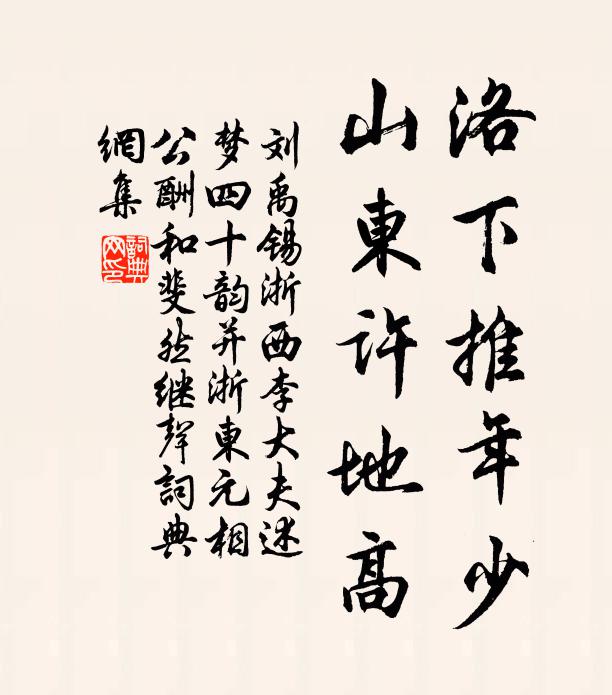 洛下推年少
山東许地高
刘禹锡浙西李大夫述
梦四十韵并浙東元相
公酬和斐然继聲詞典
網集
詞典
网印